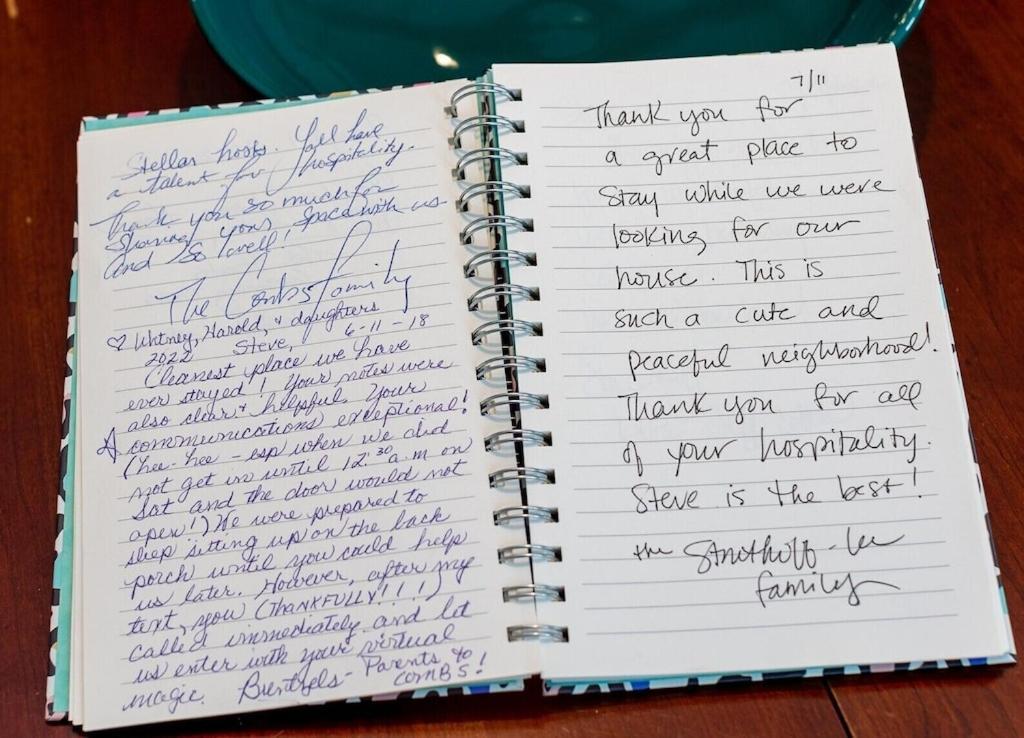 Stellar hosts. Yall have
a talent for hospitality.
Thank you so much for
sharing your space with us
and so well!
The Combs family
♡ Whitney, Harold, + daughters
2022 Steve, 6-11-18
Cleanest place we have
ever stayed! Your notes were
also clear + helpful. Your
communications exceptional!
(hee-hee - esp when we did
not get in until 12:30 a.m on
Sat and the door would not
open!) We were prepared to
sleep sitting up on the back
porch until you could help
us later. However, after my
text, you (THANKFULLY!!!!)
called immediately and let
us enter with your virtual
magic. Bentzels - Parents to
COMBS!
7/11
Thank you for
a great place to
stay while we were
looking for our
house. This is
such a cute and
peaceful neighborhood!
Thank you for all
of your hospitality.
Steve is the best!
the -Lee
family